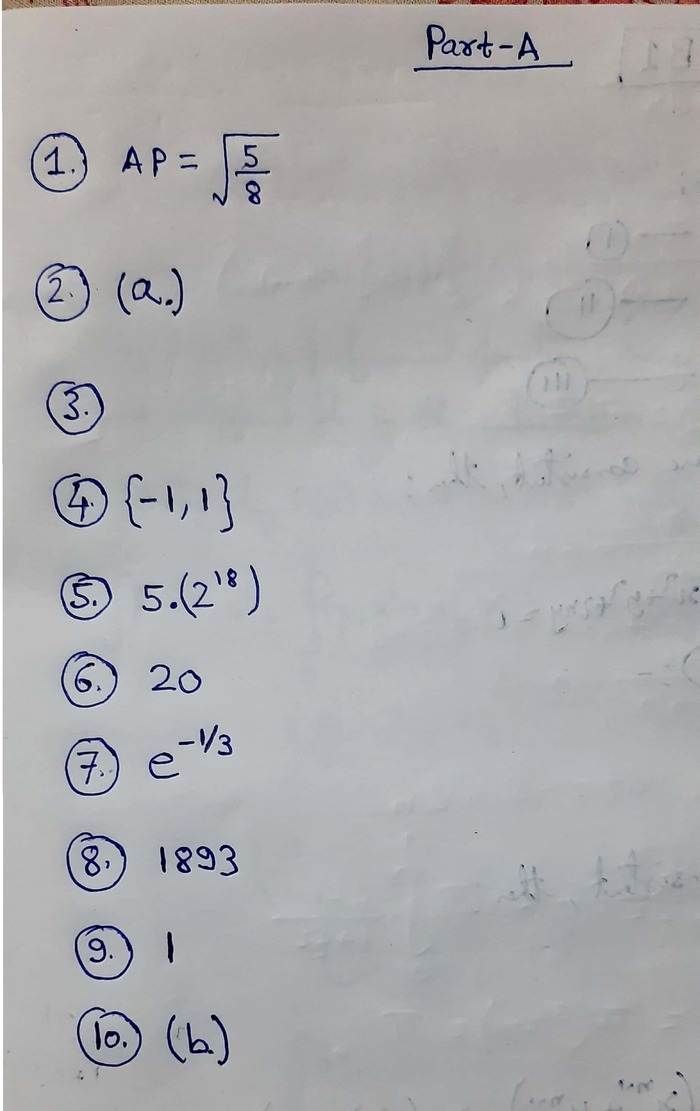 Part-A
1. AP = √(5/8)
2. (a.)
3.
4. {-1, 1}
5. 5.(2^18)
6. 20
7. e^-1/3
8. 1893
9. 1
10. (b)